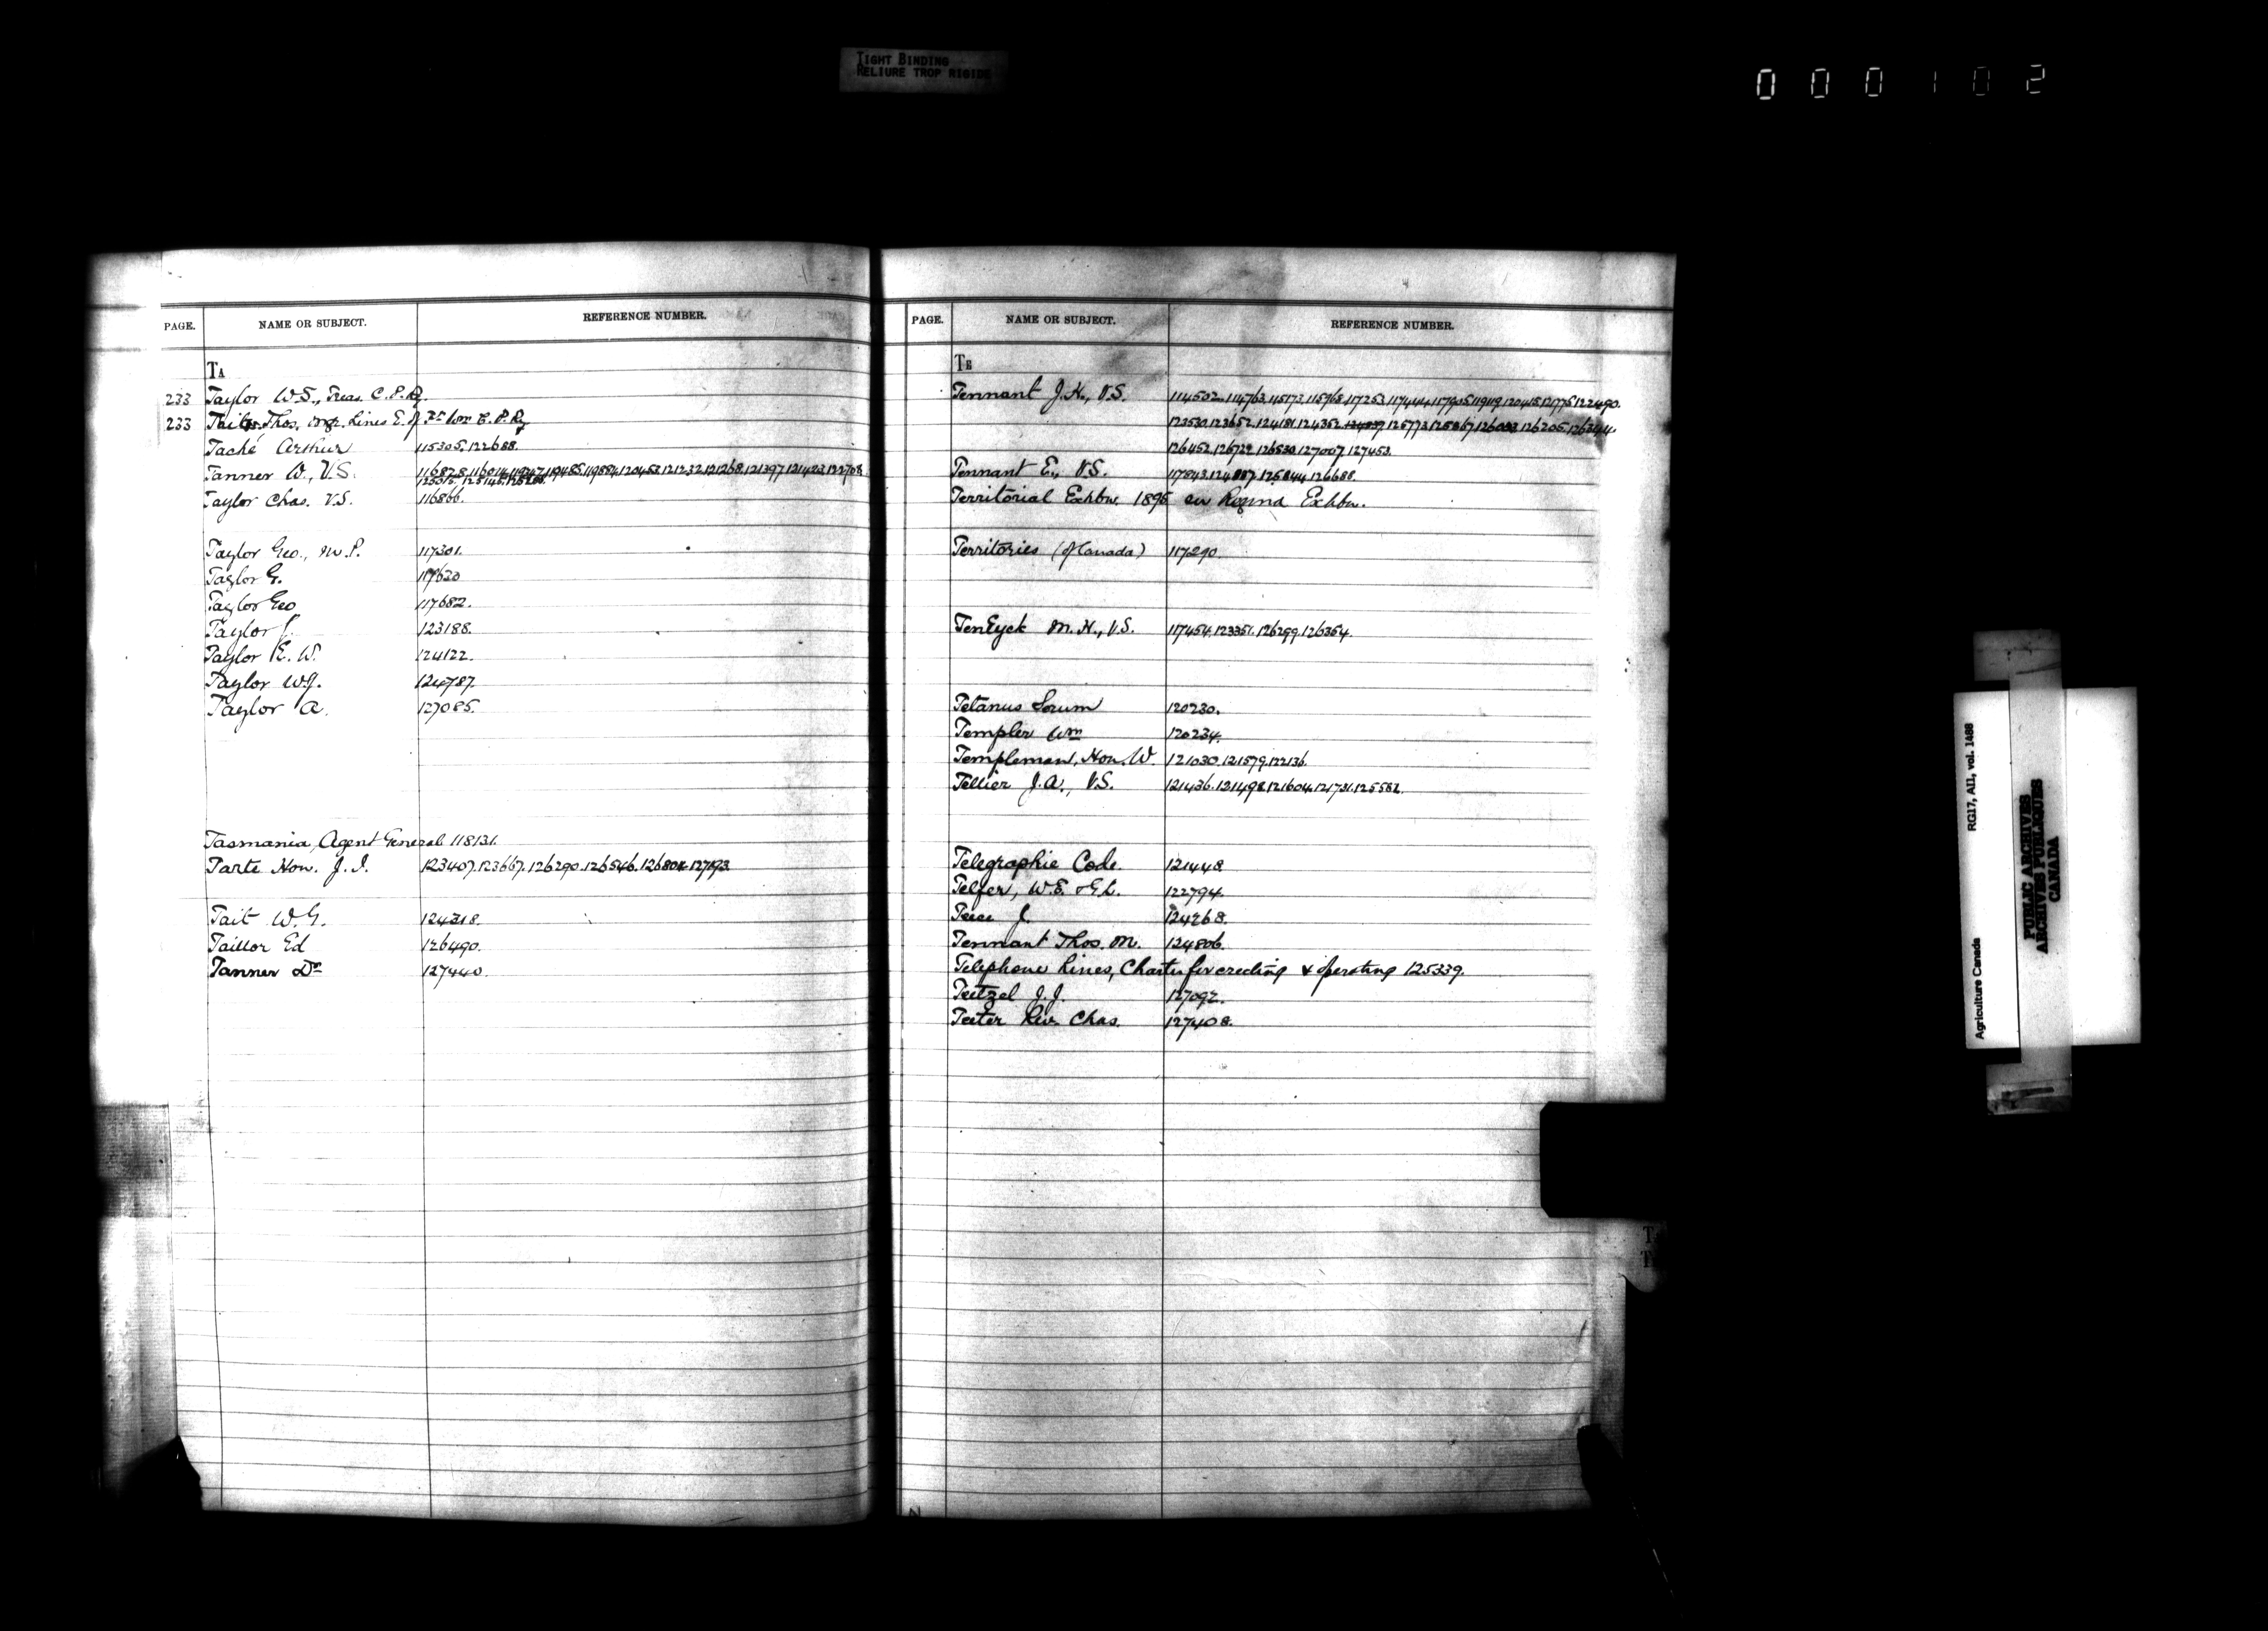 TIGHT BINDING
RELIURE TROP RIGIDE
000102
PAGE. NAME OR SUBJECT. REFERENCE NUMBER.
TA
233 Taylor W.S., Treas. C.P.Ry.
233 Thos. Lines E. of C.P.Ry
Taché Arthur 115305. 122688.
Tanner W., V.S. 121232. 121268. 121397. 121423. 122708
Taylor Chas. V.S. 116866.
Taylor Geo., M.P. 117301.
Taylor G. 117620
Taylor Geo 117682.
Taylor J. 123188.
Taylor E.W. 124122.
Taylor W.J. 124787.
Taylor A. 127085.
Tasmania, Agent General 118131.
Tarte Hon. J.I. 123407. 123667. 126290. 126546. 126804. 127193.
Tait W.G. 124318.
Taillor Ed 126490.
Tanner Dr 127440.
PAGE. NAME OR SUBJECT. REFERENCE NUMBER.
TE
Tennant J.H., V.S. 114502. 114763. 115173. 115968. 117253. 117444. 117905. 119119. 120415. 121775. 122490.
123530. 123652. 124181. 124352. 125773. 125867. 126205. 126344.
126452. 126729. 126530. 127007. 127453.
Tennant E., V.S. 117843. 124887. 125844. 126688.
Territorial Exhbn. 1895 see Regina Exhbn.
Territories (of Canada) 117290.
TenEyck M.H., V.S. 117454. 123351. 126299. 126354.
Tetanus Serum 120230.
Templer Wm 120234.
Templeman, Hon. W. 121030. 121579. 122136.
Tellier J.A., V.S. 121436. 121498. 121604. 121731. 125582.
Telegraphic Code. 121448.
Telfer, W.E. & G.L. 122794.
J. 124268.
Tennant Thos. M. 124806.
Telephone Lines, Charter for erecting & operating 125339.
Teetzel J.J. 127092.
Teeter Rev. Chas. 127408.
Agriculture Canada RG17, AII, vol. 1488
PUBLIC ARCHIVES
ARCHIVES PUBLIQUES
CANADA